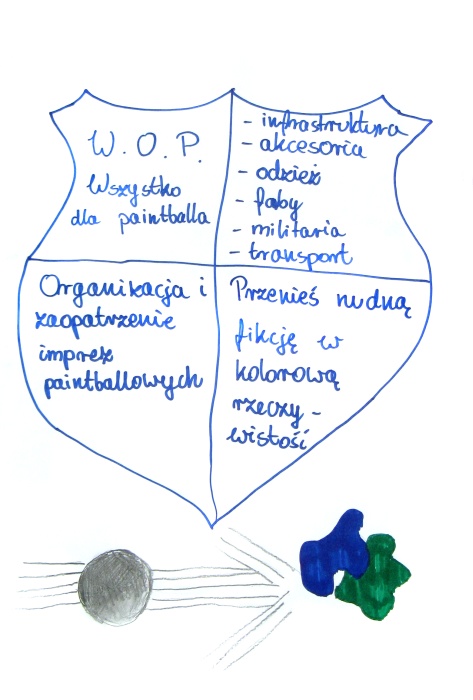 W. O. P.
Wszystko
dla paintballa
- infrastruktura
- akcesoria
- odzież
- faby
- militaria
- transport
Organizacja i
zaopatrzenie
imprez
paintballowych
Przenieś nudną
fikcję w
kolorową
rzeczy -
wistość